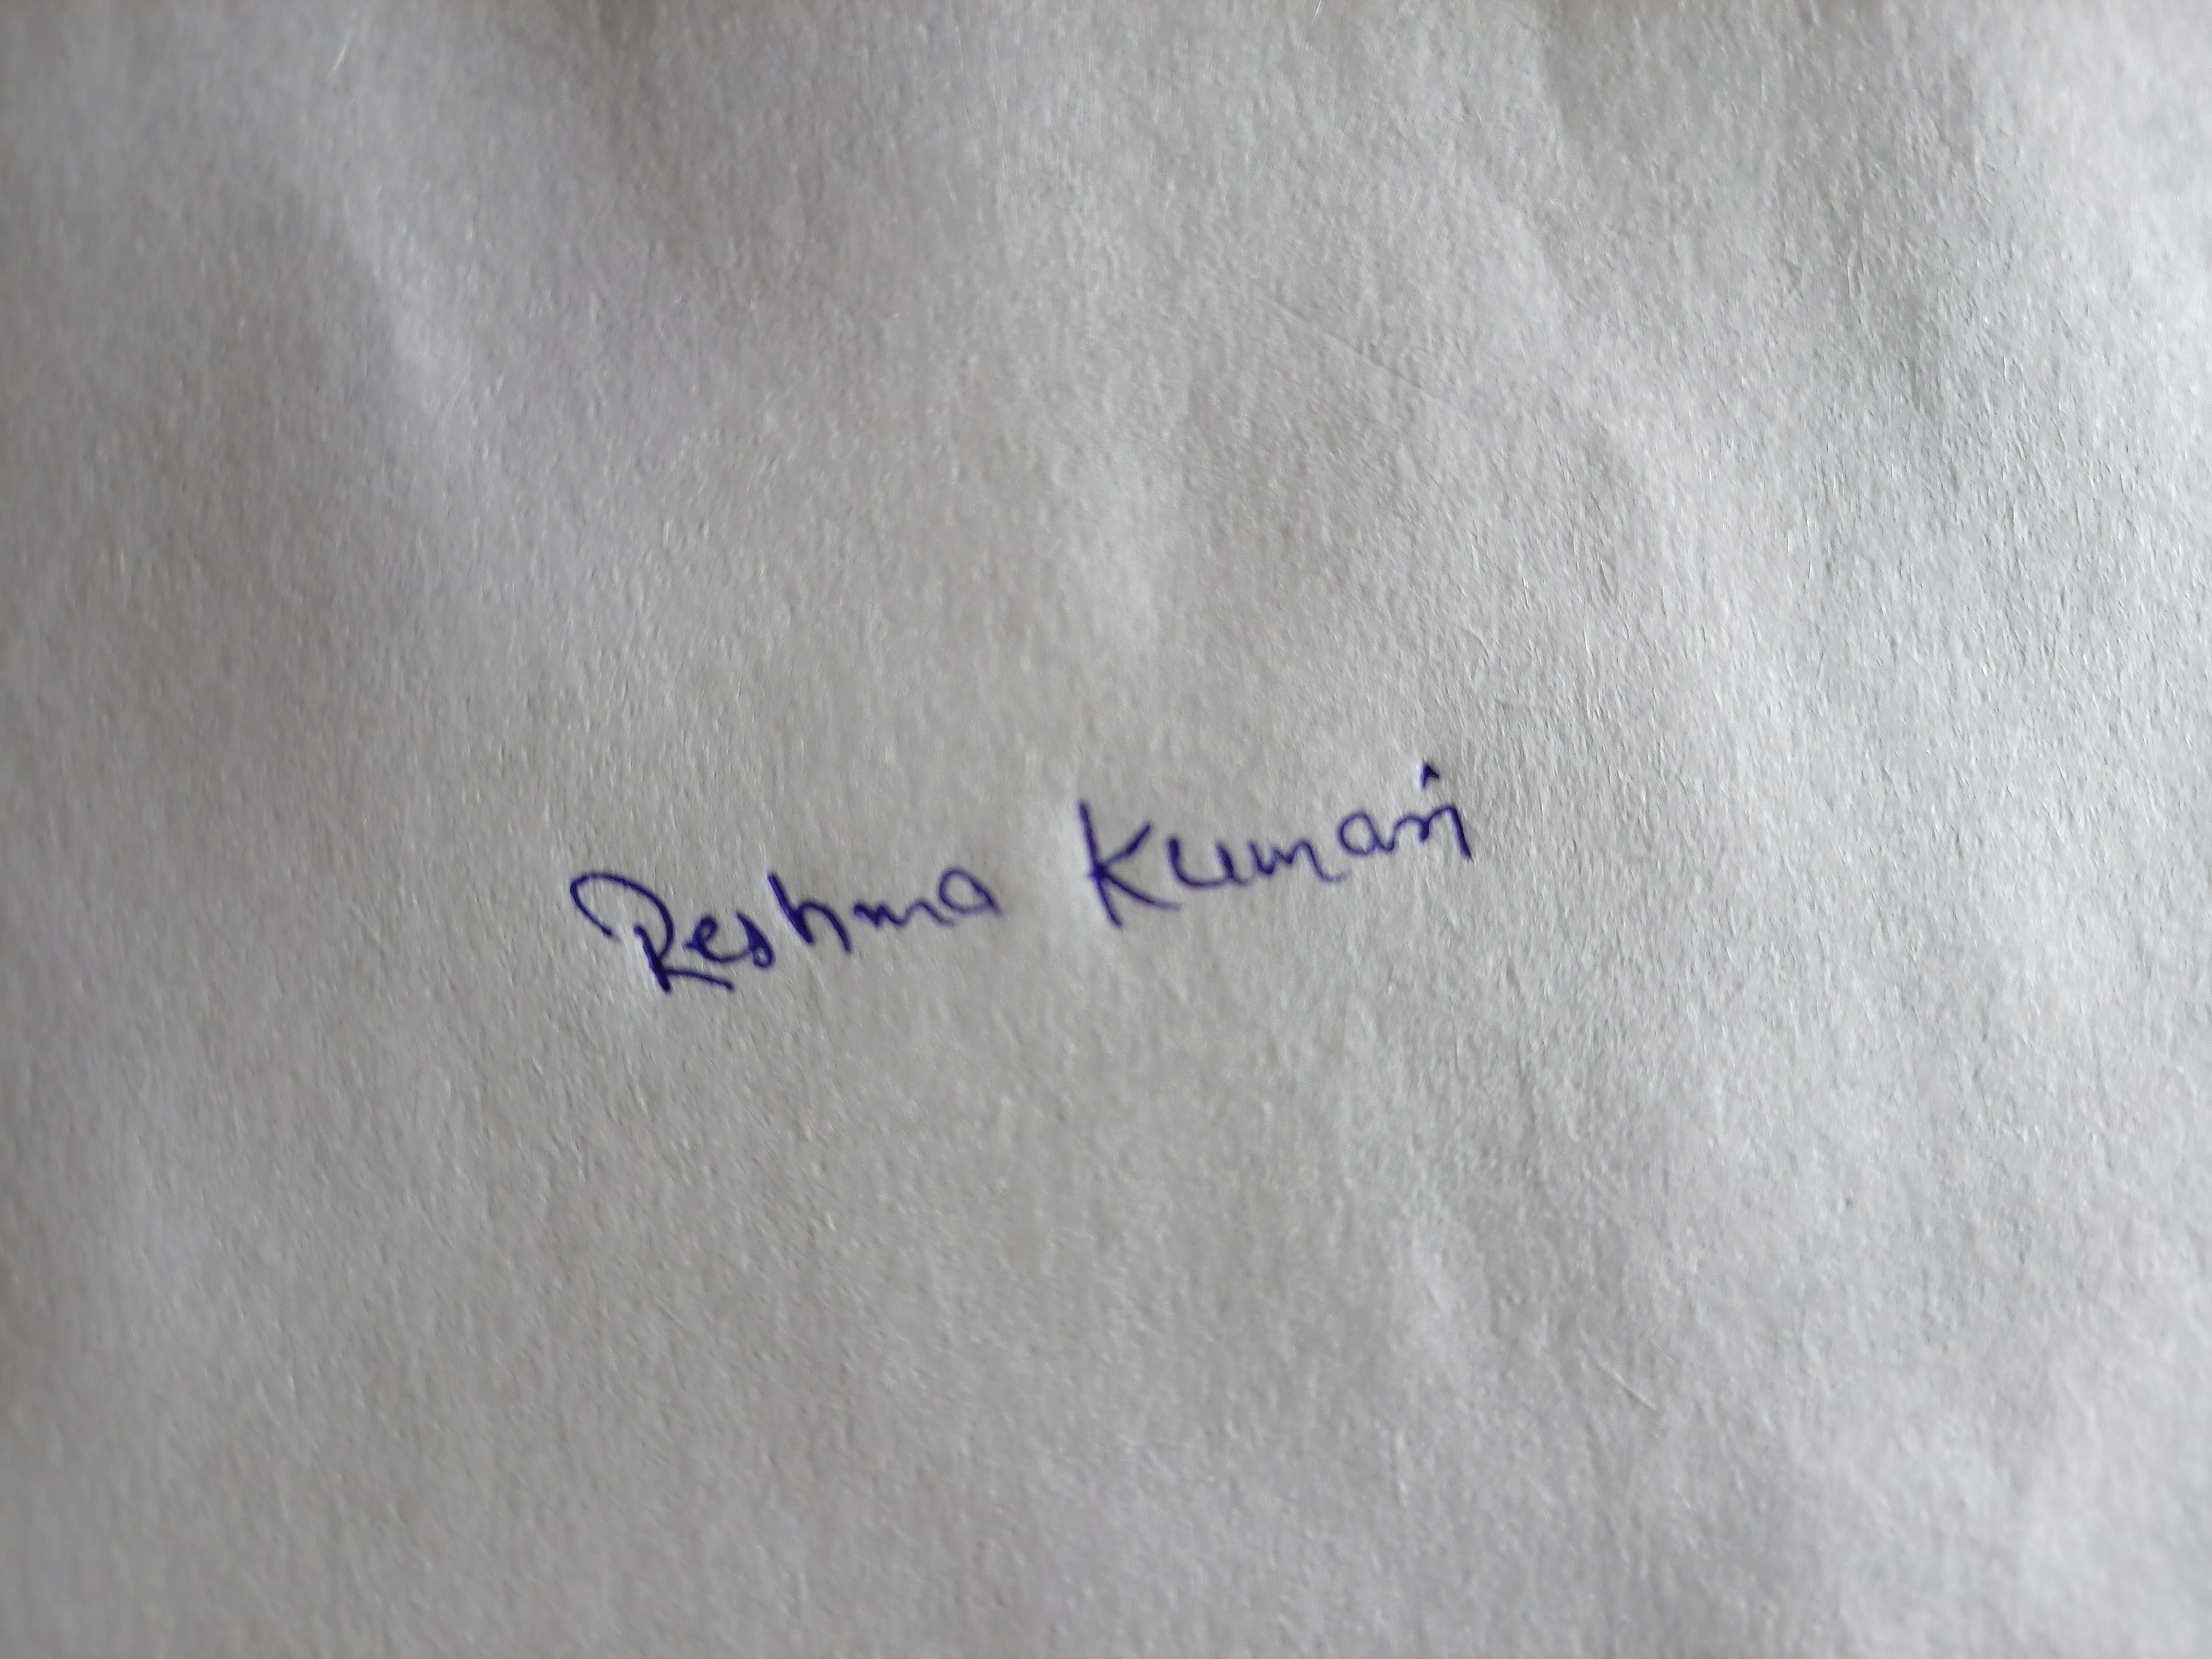 Reshma Kumari